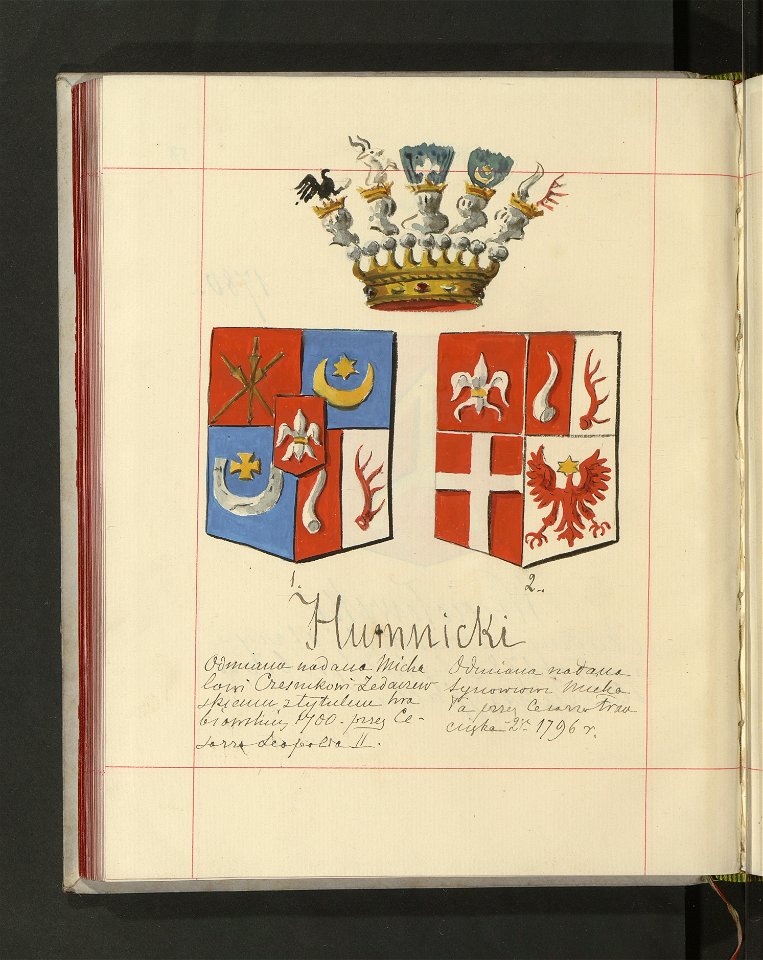 1.
2..
Humnicki
Odmiana nadana Micha
łowi Cześnikowi
skiemu z tytułem hra
biowskim 1780. przez Ce-
sarza Leopolda II.
Odmiana nadana
synowiowi Micha
ła przez Cesarza Fran
ciszka 2go 1796 r.